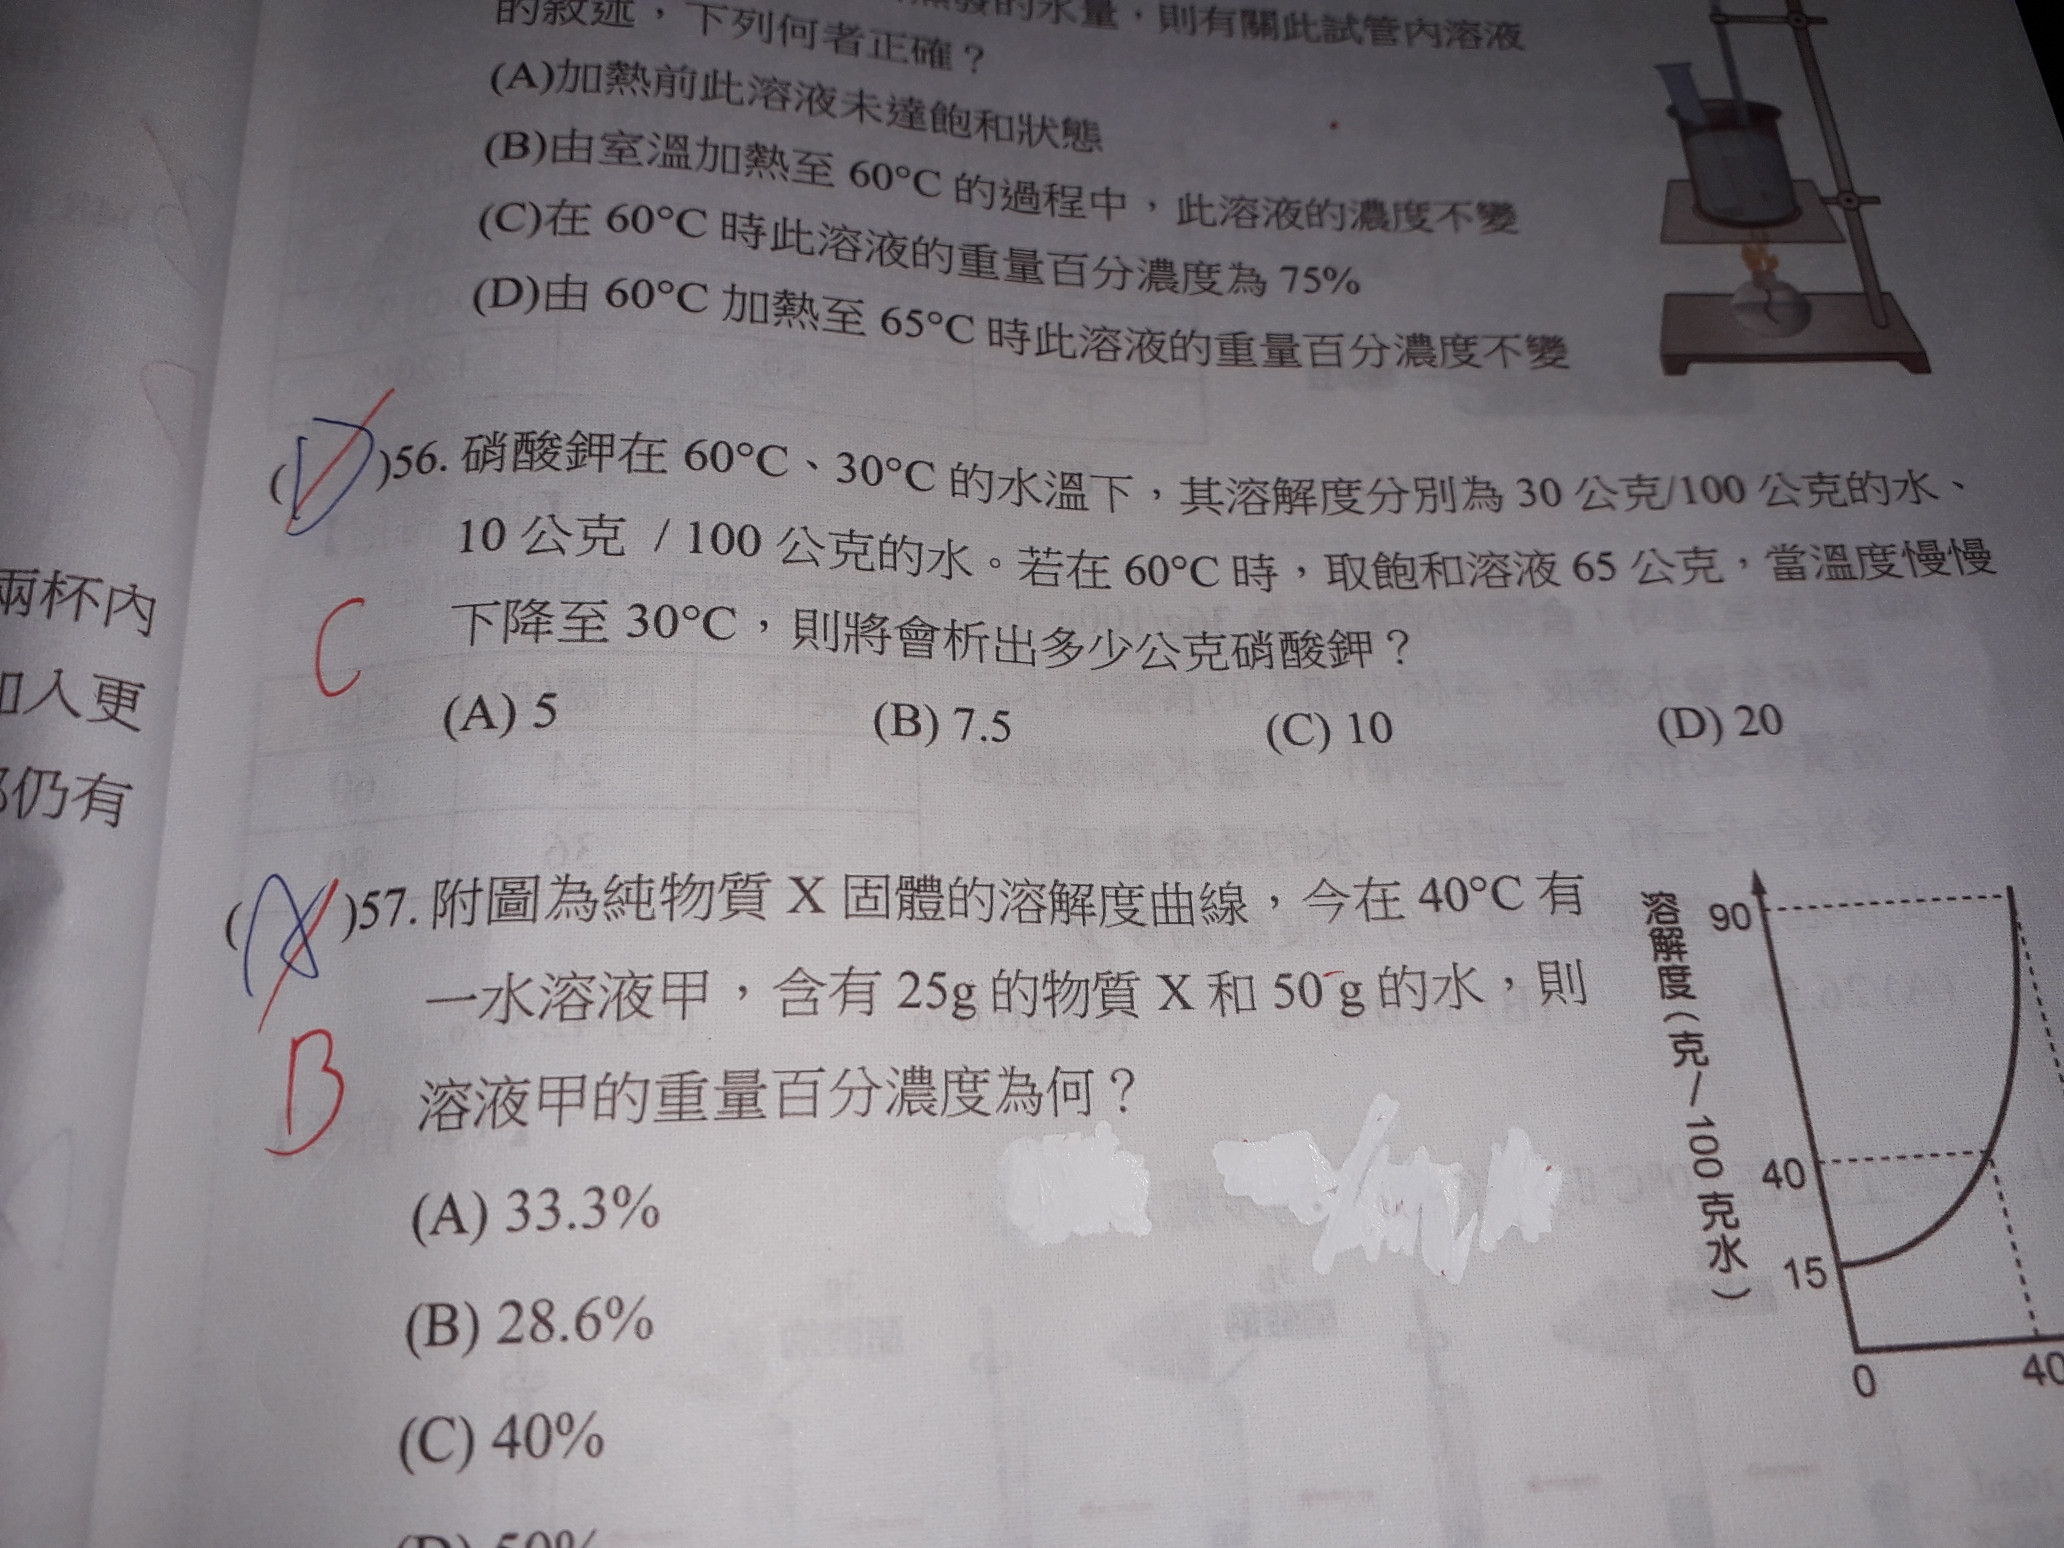 發的水量,則有關此試管內溶液
的敘述,下列何者正確?
(A)加熱前此溶液未達飽和狀態
(B)由室溫加熱至 60°C 的過程中,此溶液的濃度不變
(C)在 60°C 時此溶液的重量百分濃度為 75%
(D)由 60°C 加熱至 65°C 時此溶液的重量百分濃度不變
(D)56. 硝酸鉀在 60°C、30°C 的水溫下,其溶解度分別為 30 公克/100 公克的水、
10 公克 / 100 公克的水。若在 60°C 時,取飽和溶液 65 公克,當溫度慢慢
下降至 30°C,則將會析出多少公克硝酸鉀?
C
(A) 5 (B) 7.5 (C) 10 (D) 20
(A)57. 附圖為純物質 X 固體的溶解度曲線,今在 40°C 有
一水溶液甲,含有 25g 的物質 X 和 50 g 的水,則
溶液甲的重量百分濃度為何?
B
(A) 33.3%
(B) 28.6%
(C) 40%
(D) 50%
溶解度(克/100克水)
90
40
15
0 40
兩杯內
加入更
仍有